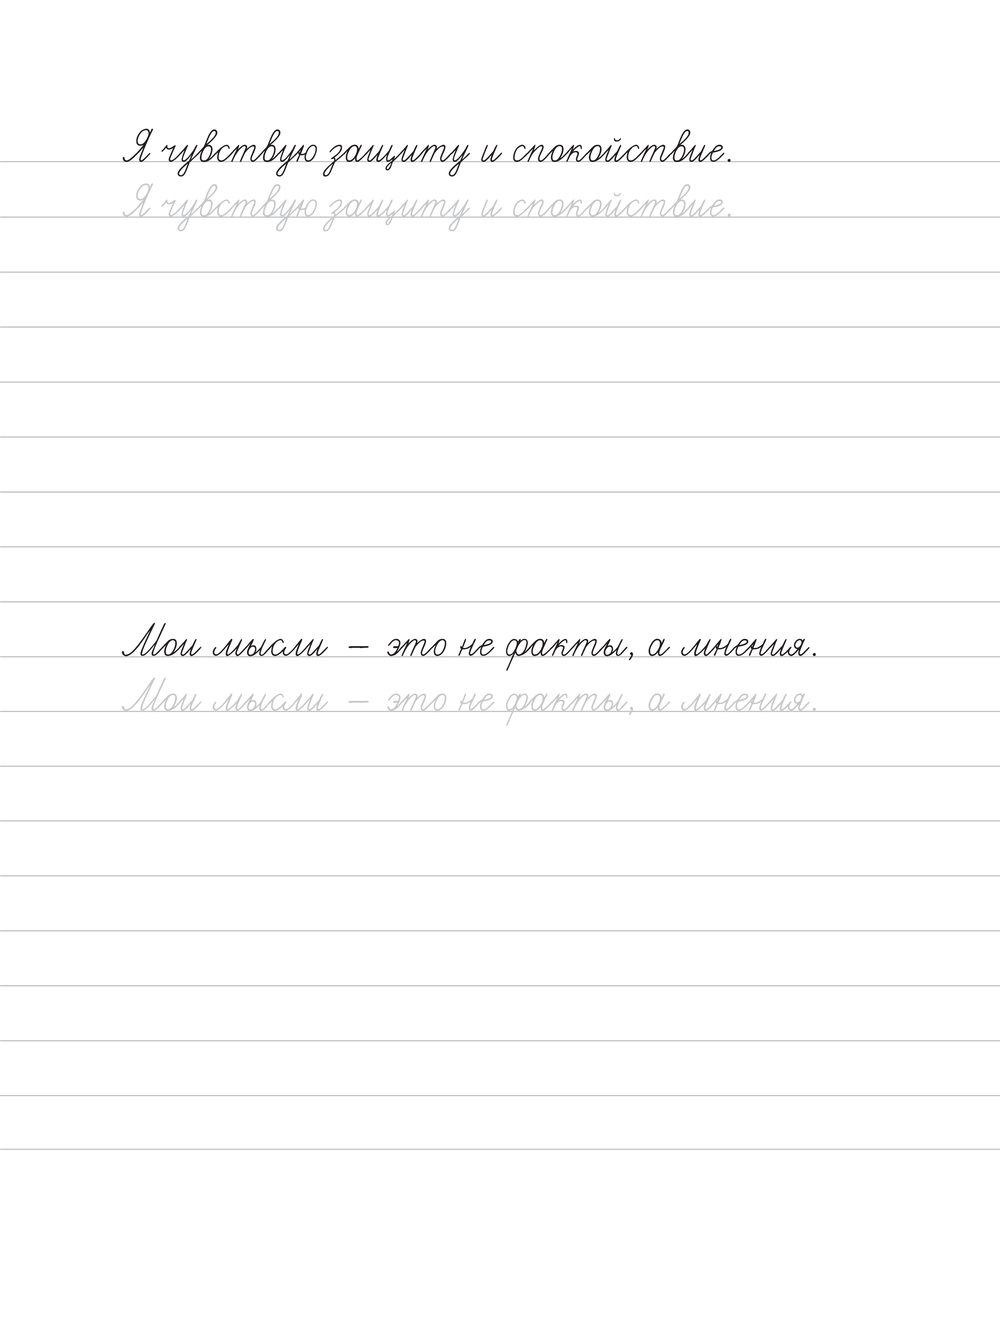 Я чувствую защиту и спокойствие.
Я чувствую защиту и спокойствие.
Мои мысли – это не факты, а мнения.
Мои мысли – это не факты, а мнения.